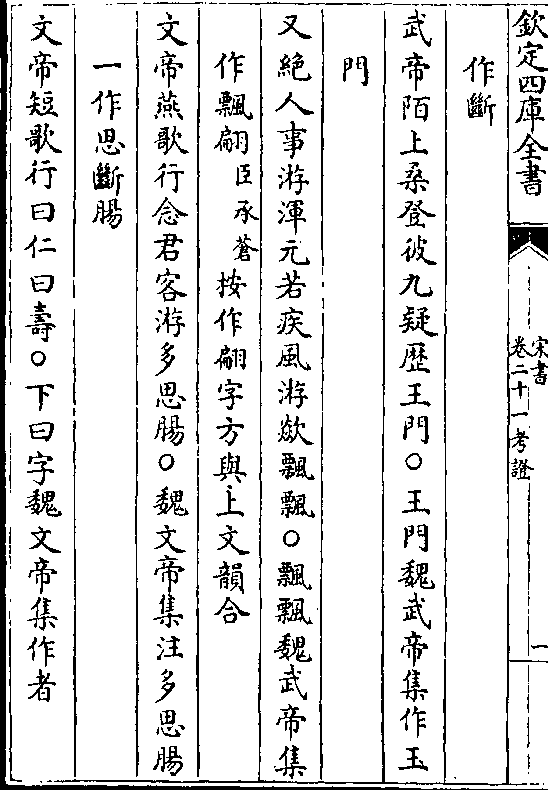 欽定四庫全書
宋書
卷二十一考證
一
作斷
武帝陌上桑登彼九疑歴王門○王門魏武帝集作玉
門
又絕人事游渾元若疾風游歘飄飄○飄飄魏武帝集
作飄翩臣承蒼按作翩字方與上文韻合
文帝燕歌行念君客游多思腸○魏文帝集注多思腸
一作思斷腸
文帝短歌行曰仁曰壽○下曰字魏文帝集作者